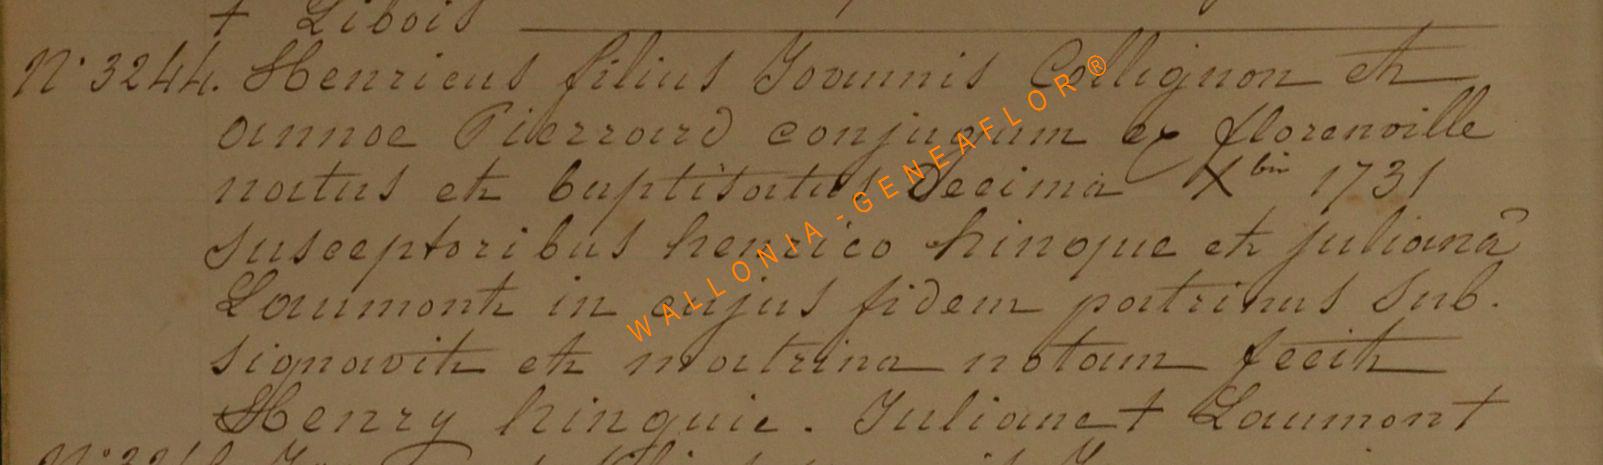 † Libois
N° 3244. Henricus filius Joannis Collignon et
annae Pierrard conjugum ex florenville
natus et baptisatus decima Xbris 1731
susceptoribus henrico hinque et julianâ
Laumont in cujus fidem patrinus sub.
signavit et matrina notam fecit
Henry hinquie. Juliane † Laumont
WALLONIA - GENEAFLOR®